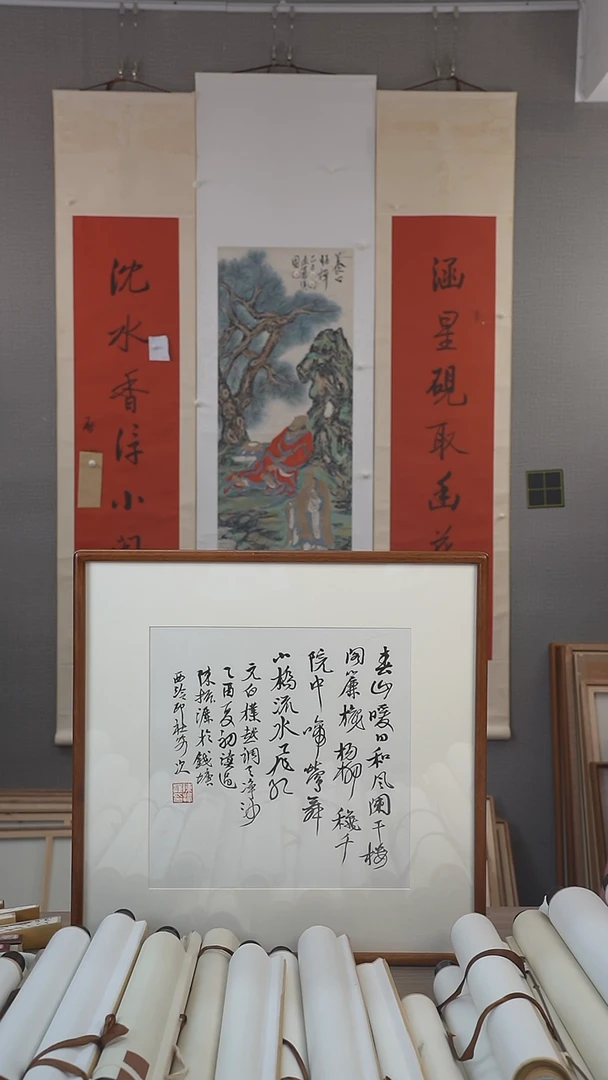 涵星硯取幽
沈水香浮小
春山暖日和風闌干楼
閣簾櫳楊柳穐千
院中啼鶯舞
小橋流水飛紅
元白樸越調天净沙
乙酉夏初
陳振濂於錢塘
西泠印社